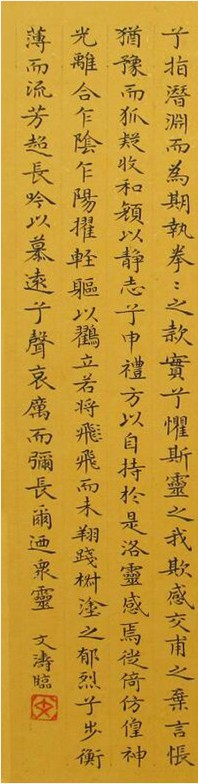 兮指潛淵而為期執拳〻之款實兮懼斯靈之我欺感交甫之棄言悵
猶豫而狐疑收和顏以静志兮申禮方以自持於是洛靈感焉徙倚仿偟神
光離合乍陰乍陽擢輕軀以鸖立若将飛飛而未翔踐椒塗之郁烈兮步衡
薄而流芳超長吟以慕遠兮聲哀厲而彌長爾迺衆靈
文濤臨